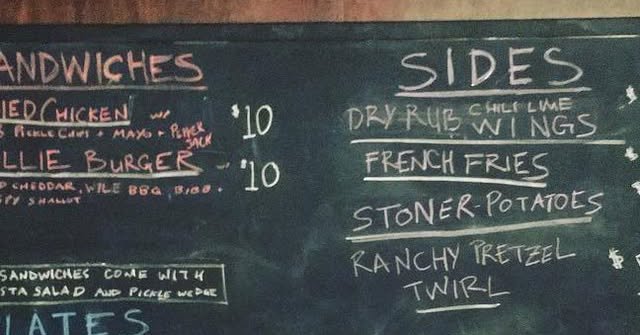 ANDWICHES
IED CHICKEN w/ $10
PICKLE CHIPS + MAYO + PEPPER JACK
LLIE BURGER - $10
CHEDDAR, BBQ
PY SHALLOT
SANDWICHES COME WITH
STA SALAD AND PICKLE WEDGE
LATES
SIDES
DRY RUB CHILI LIME WINGS
FRENCH FRIES
STONER POTATOES
RANCHY PRETZEL
TWIRL